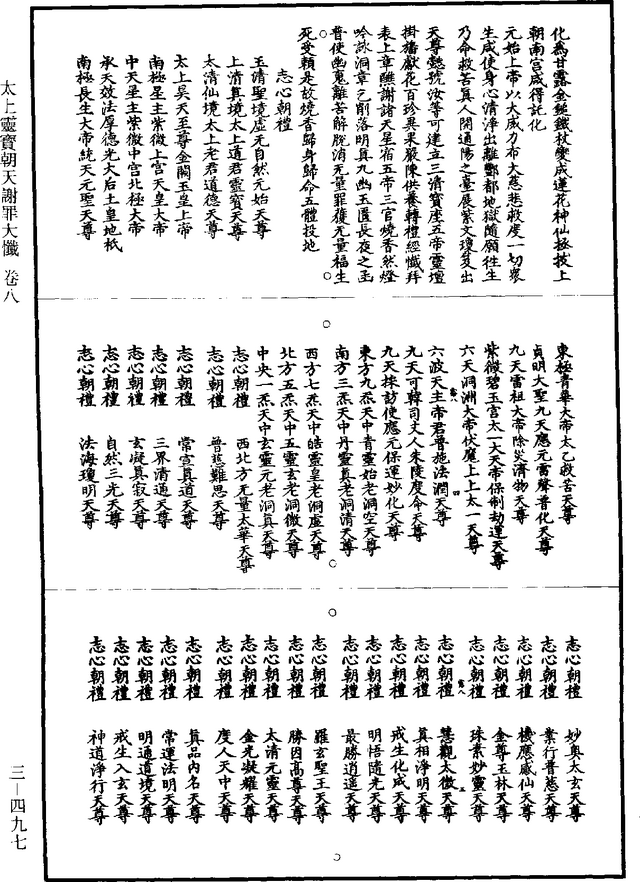 化為甘露金鎚鐵杖變成蓮花神仙極拔上
朝南宮咸得託化
元始上帝以大威力布大慈悲救度一切眾
生咸使身心清淨出離酆都地獄隨願往生
乃命救苦真人開通陽之臺展紫文瓊笈出
天尊懿號汝等可建立三清寶座五帝靈壇
掛旛獻花百珍異果嚴陳供養轉禮經懺拜
表上章醮謝諸天星宿五帝三官燒香然燈
吟詠洞章乞削落明真九幽玉匱長夜之函
普使幽鬼離苦解脫消无量罪獲无量福生
死受賴是故燒香歸身歸命五體投地
志心朝禮
玉清聖境虛无自然元始天尊
上清真境太上道君靈寶天尊
太清仙境太上老君道德天尊
太上昊天至尊金闕玉皇上帝
南極星主紫微上宮天皇大帝
中天星主紫微中宮北極大帝
承天效法厚德光大后土皇地祇
南極長生大帝統天元聖天尊
東極青華大帝太乙救苦天尊
貞明大聖九天應元雷聲普化天尊
九天雷祖大帝除災濟物天尊
紫微碧玉宮太一大天帝保制劫運天尊
六天洞淵大帝伏魔上上太一天尊
六波天主帝君普施法潤天尊
九天可韓司丈人朱陵度命天尊
九天採訪使應元保運妙化天尊
東方九炁天中青靈始老洞空天尊
南方三炁天中丹靈真老洞清天尊
西方七炁天中皓靈皇老洞虛天尊
北方五炁天中五靈玄老洞微天尊
中央一炁天中玄靈元老洞真天尊
志心朝禮 西北方无量太華天尊
志心朝禮 普慈難思天尊
志心朝禮 常宣真道天尊
志心朝禮 三界清通天尊
志心朝禮 玄凝真寂天尊
志心朝禮 自然三光天尊
志心朝禮 法海瓊明天尊
志心朝禮 妙奧太玄天尊
志心朝禮 業行普慈天尊
志心朝禮 機應感仙天尊
志心朝禮 金尊玉林天尊
志心朝禮 珠素妙靈天尊
志心朝禮 慧觀太微天尊
志心朝禮 真相淨明天尊
志心朝禮 戒生化成天尊
志心朝禮 明悟隨光天尊
志心朝禮 最勝逍遙天尊
志心朝禮 羅玄聖王天尊
志心朝禮 勝因高尊天尊
志心朝禮 太清元靈天尊
志心朝禮 金光凝耀天尊
志心朝禮 度人天中天尊
志心朝禮 真品內名天尊
志心朝禮 常運法明天尊
志心朝禮 明通道境天尊
志心朝禮 戒生入玄天尊
志心朝禮 神道淨行天尊
太上靈寶朝天謝罪大懺 卷八
三—四九七